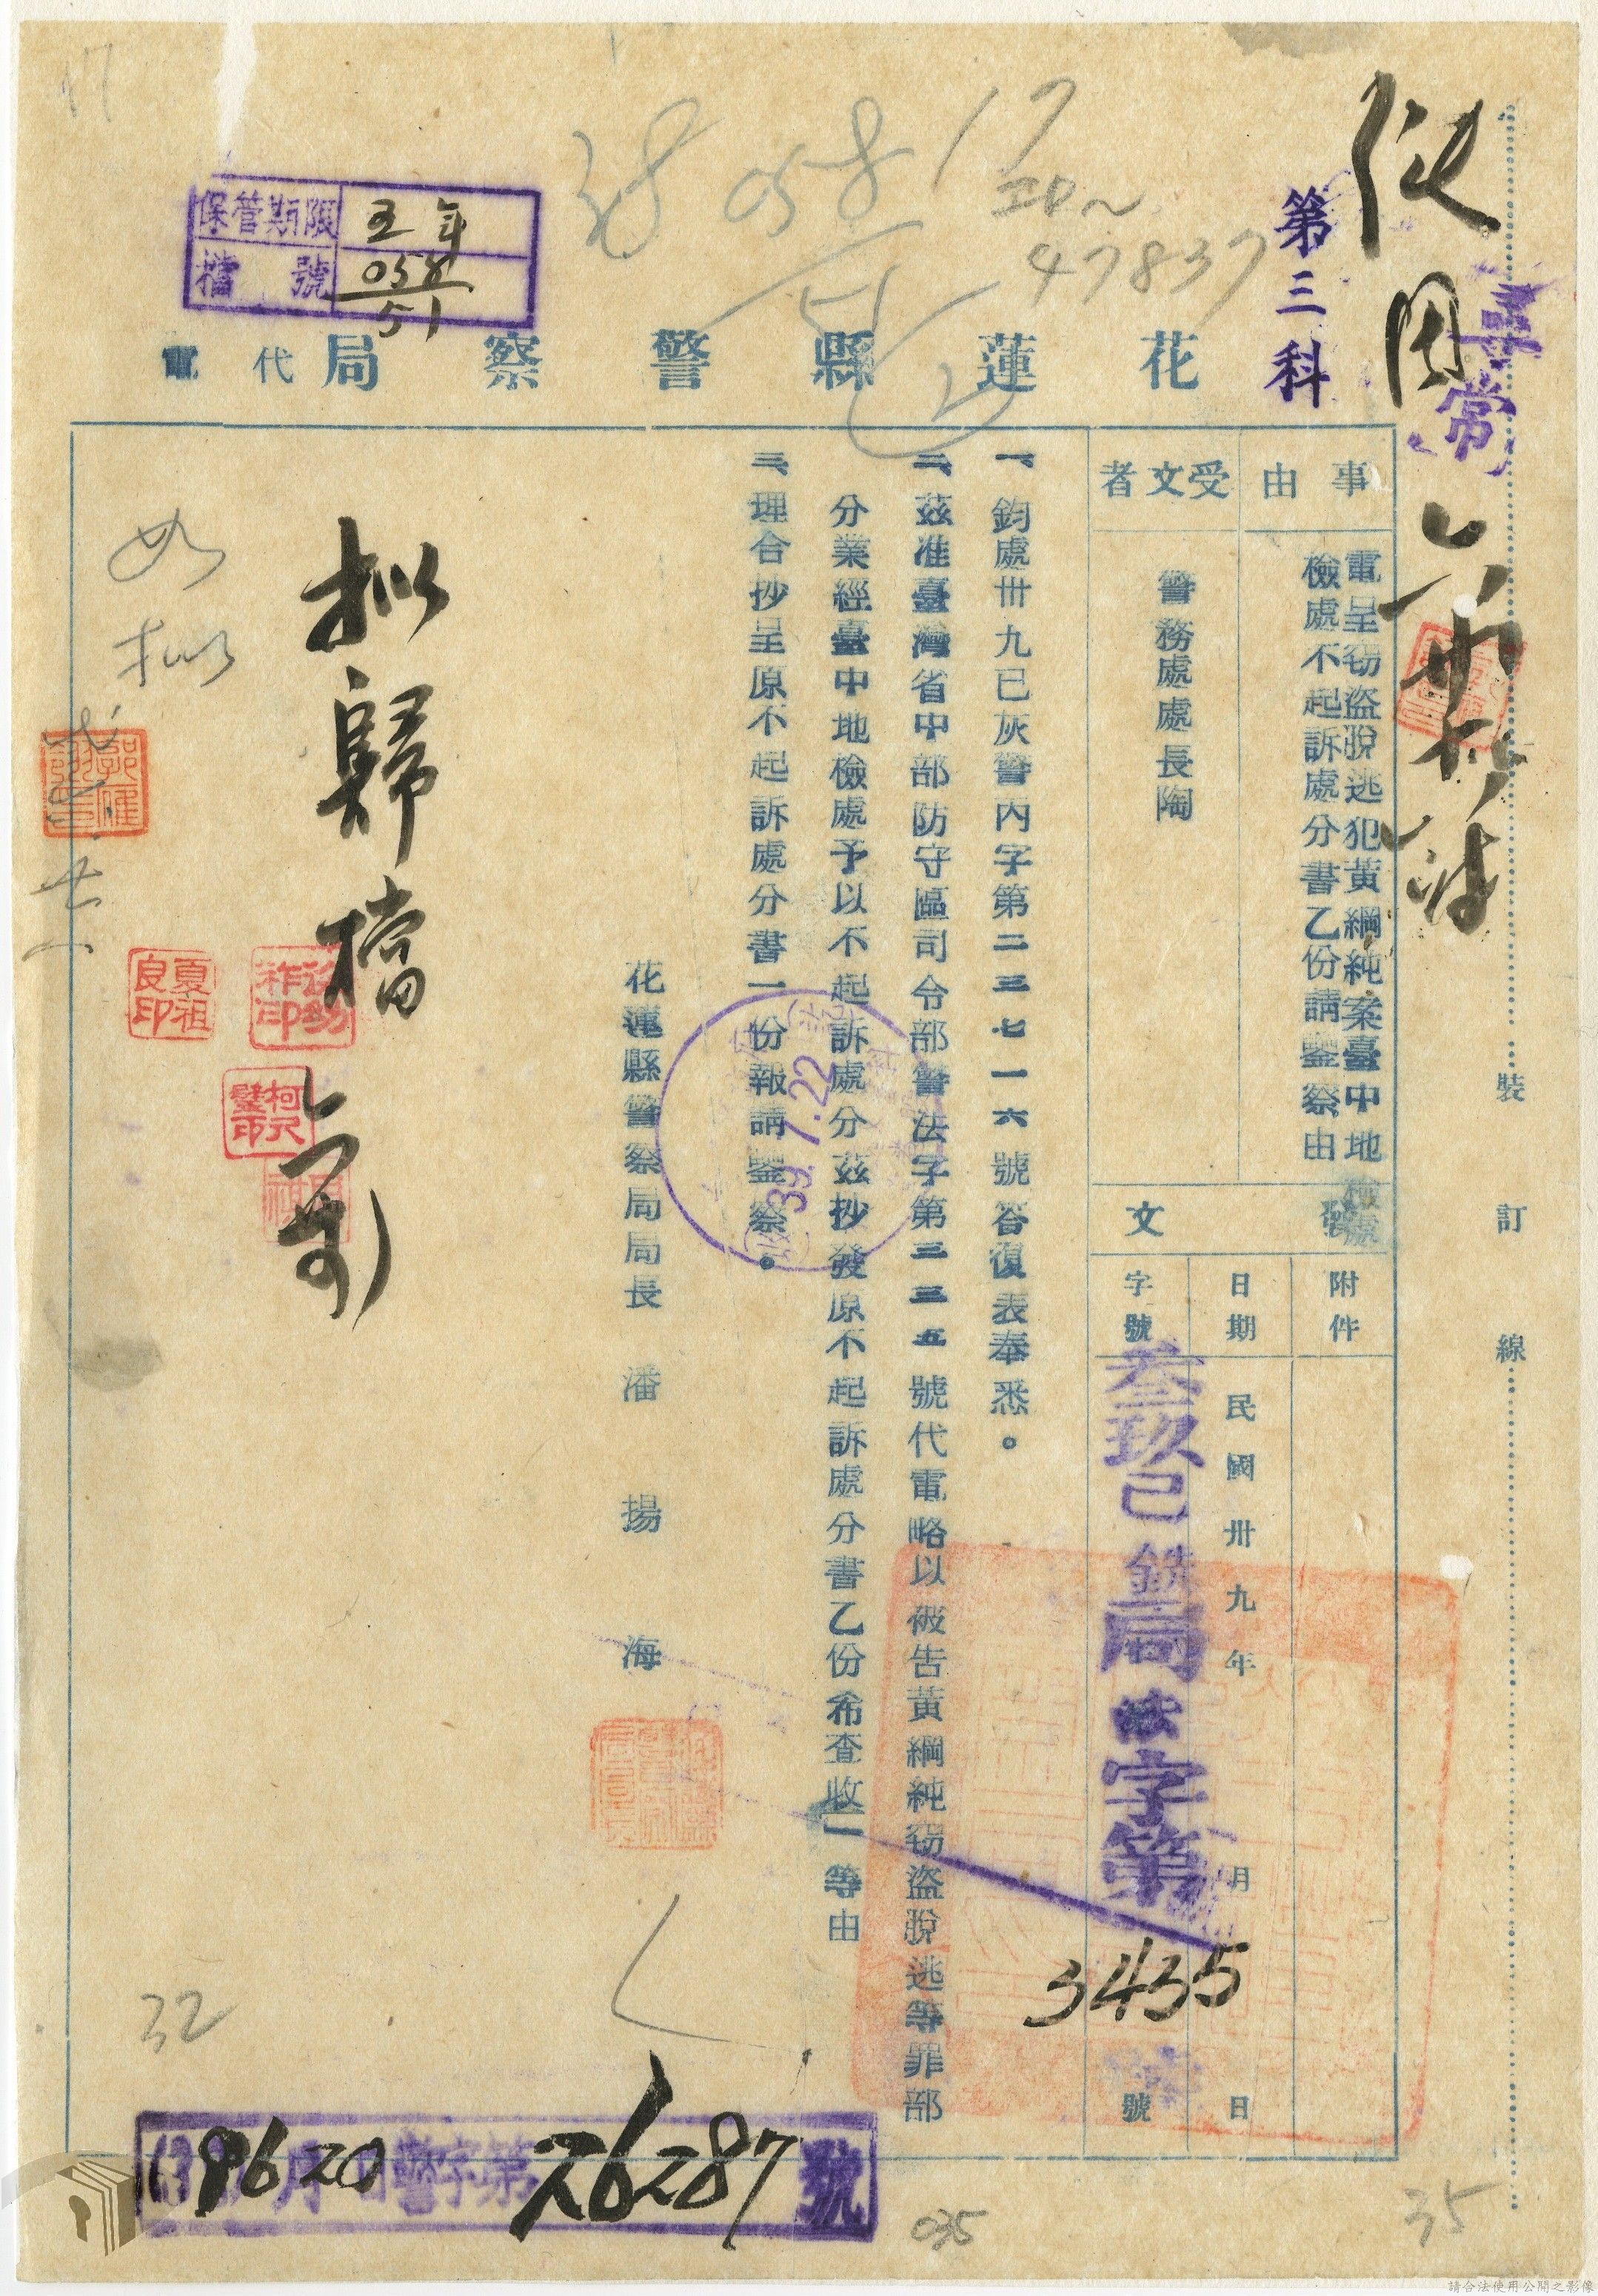 第三科
保管期限 五年
檔號 058/51
058
51
47837
花蓮縣警察局代電
事由
電呈竊盜脫逃犯黃綱純案臺中地檢處
檢處不起訴處分書乙份請鑒察由
受文者
警務處處長陶
發文
附件
日期
民國卅九年 月 日
字號
叁玖巳 局法字第3435號
一、鈞處卅九已灰警內字第二三七一一六號答復表奉悉。
二、茲准臺灣省中部防守區司令部警法字第三三五號代電略以被告黃綱純竊盜脫逃等罪部
分業經臺中地檢處予以不起訴處分茲抄發原不起訴處分書乙份希查收」等由
三、理合抄呈原不起訴處分書一份報請鑒察。
花蓮縣警察局局長潘揚海
39. 7. 22
擬歸檔
如擬
夏祖良印
裝訂線
39 6 20 警字第26287號
32
035
35
17
請合法使用公開之影像